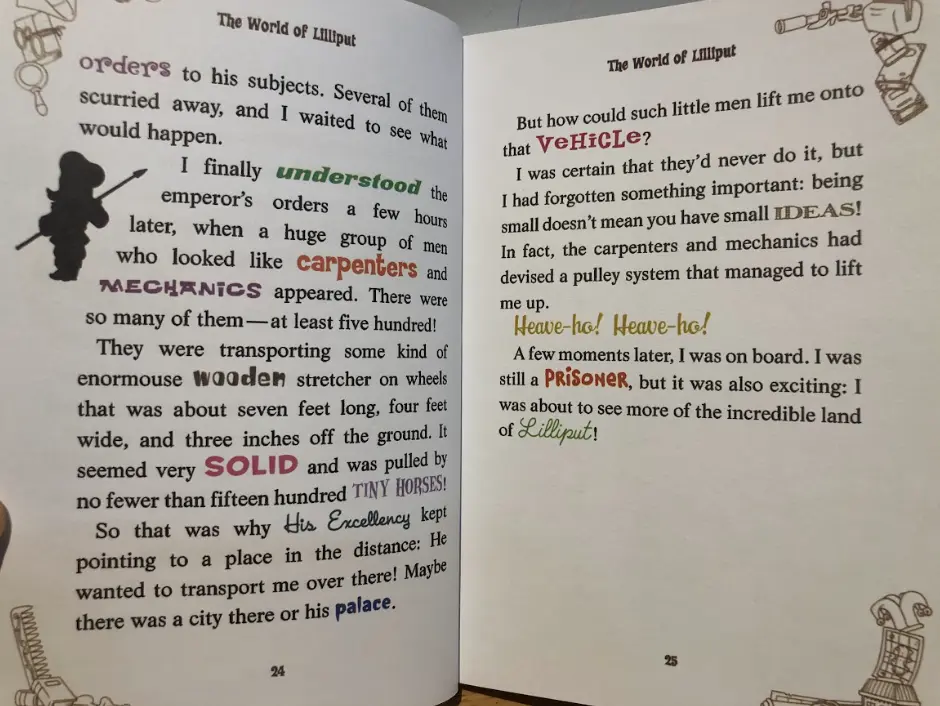 The World of Lilliput
orders to his subjects. Several of them
scurried away, and I waited to see what
would happen.
I finally understood the
emperor's orders a few hours
later, when a huge group of men
who looked like carpenters and
MECHANICS appeared. There were
so many of them—at least five hundred!
They were transporting some kind of
enormouse wooden stretcher on wheels
that was about seven feet long, four feet
wide, and three inches off the ground. It
seemed very SOLID and was pulled by
no fewer than fifteen hundred TINY HORSES!
So that was why His Excellency kept
pointing to a place in the distance: He
wanted to transport me over there! Maybe
there was a city there or his palace.
24
The World of Lilliput
But how could such little men lift me onto
that VeHiCLe?
I was certain that they'd never do it, but
I had forgotten something important: being
small doesn't mean you have small IDEAS!
In fact, the carpenters and mechanics had
devised a pulley system that managed to lift
me up.
Heave-ho! Heave-ho!
A few moments later, I was on board. I was
still a PRiSONeR, but it was also exciting: I
was about to see more of the incredible land
of Lilliput!
25